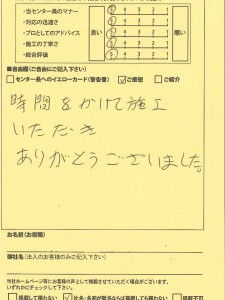 ・当センター員のマナー
・対応の迅速さ
・プロとしてのアドバイス
・施工の丁寧さ
・総合評価
良い
悪い
5 4 3 2 1
5 4 3 2 1
5 4 3 2 1
5 4 3 2 1
5 4 3 2 1
■自由欄(ご自由にご記入下さい)
□センター長へのイエローカード(警告書) ☑ご感想 □ご紹介
時間をかけて施工
いただき
ありがとうございました。
お名前(お役職)
御社名(法人のお客様のみご記入下さい)
当社ホームページ等にお客様の声として掲載させていただく場合がございます。
いずれかにチェックして下さい。
□掲載して構わない ☑社名・名前が匿名ならば掲載しても構わない □掲載不可